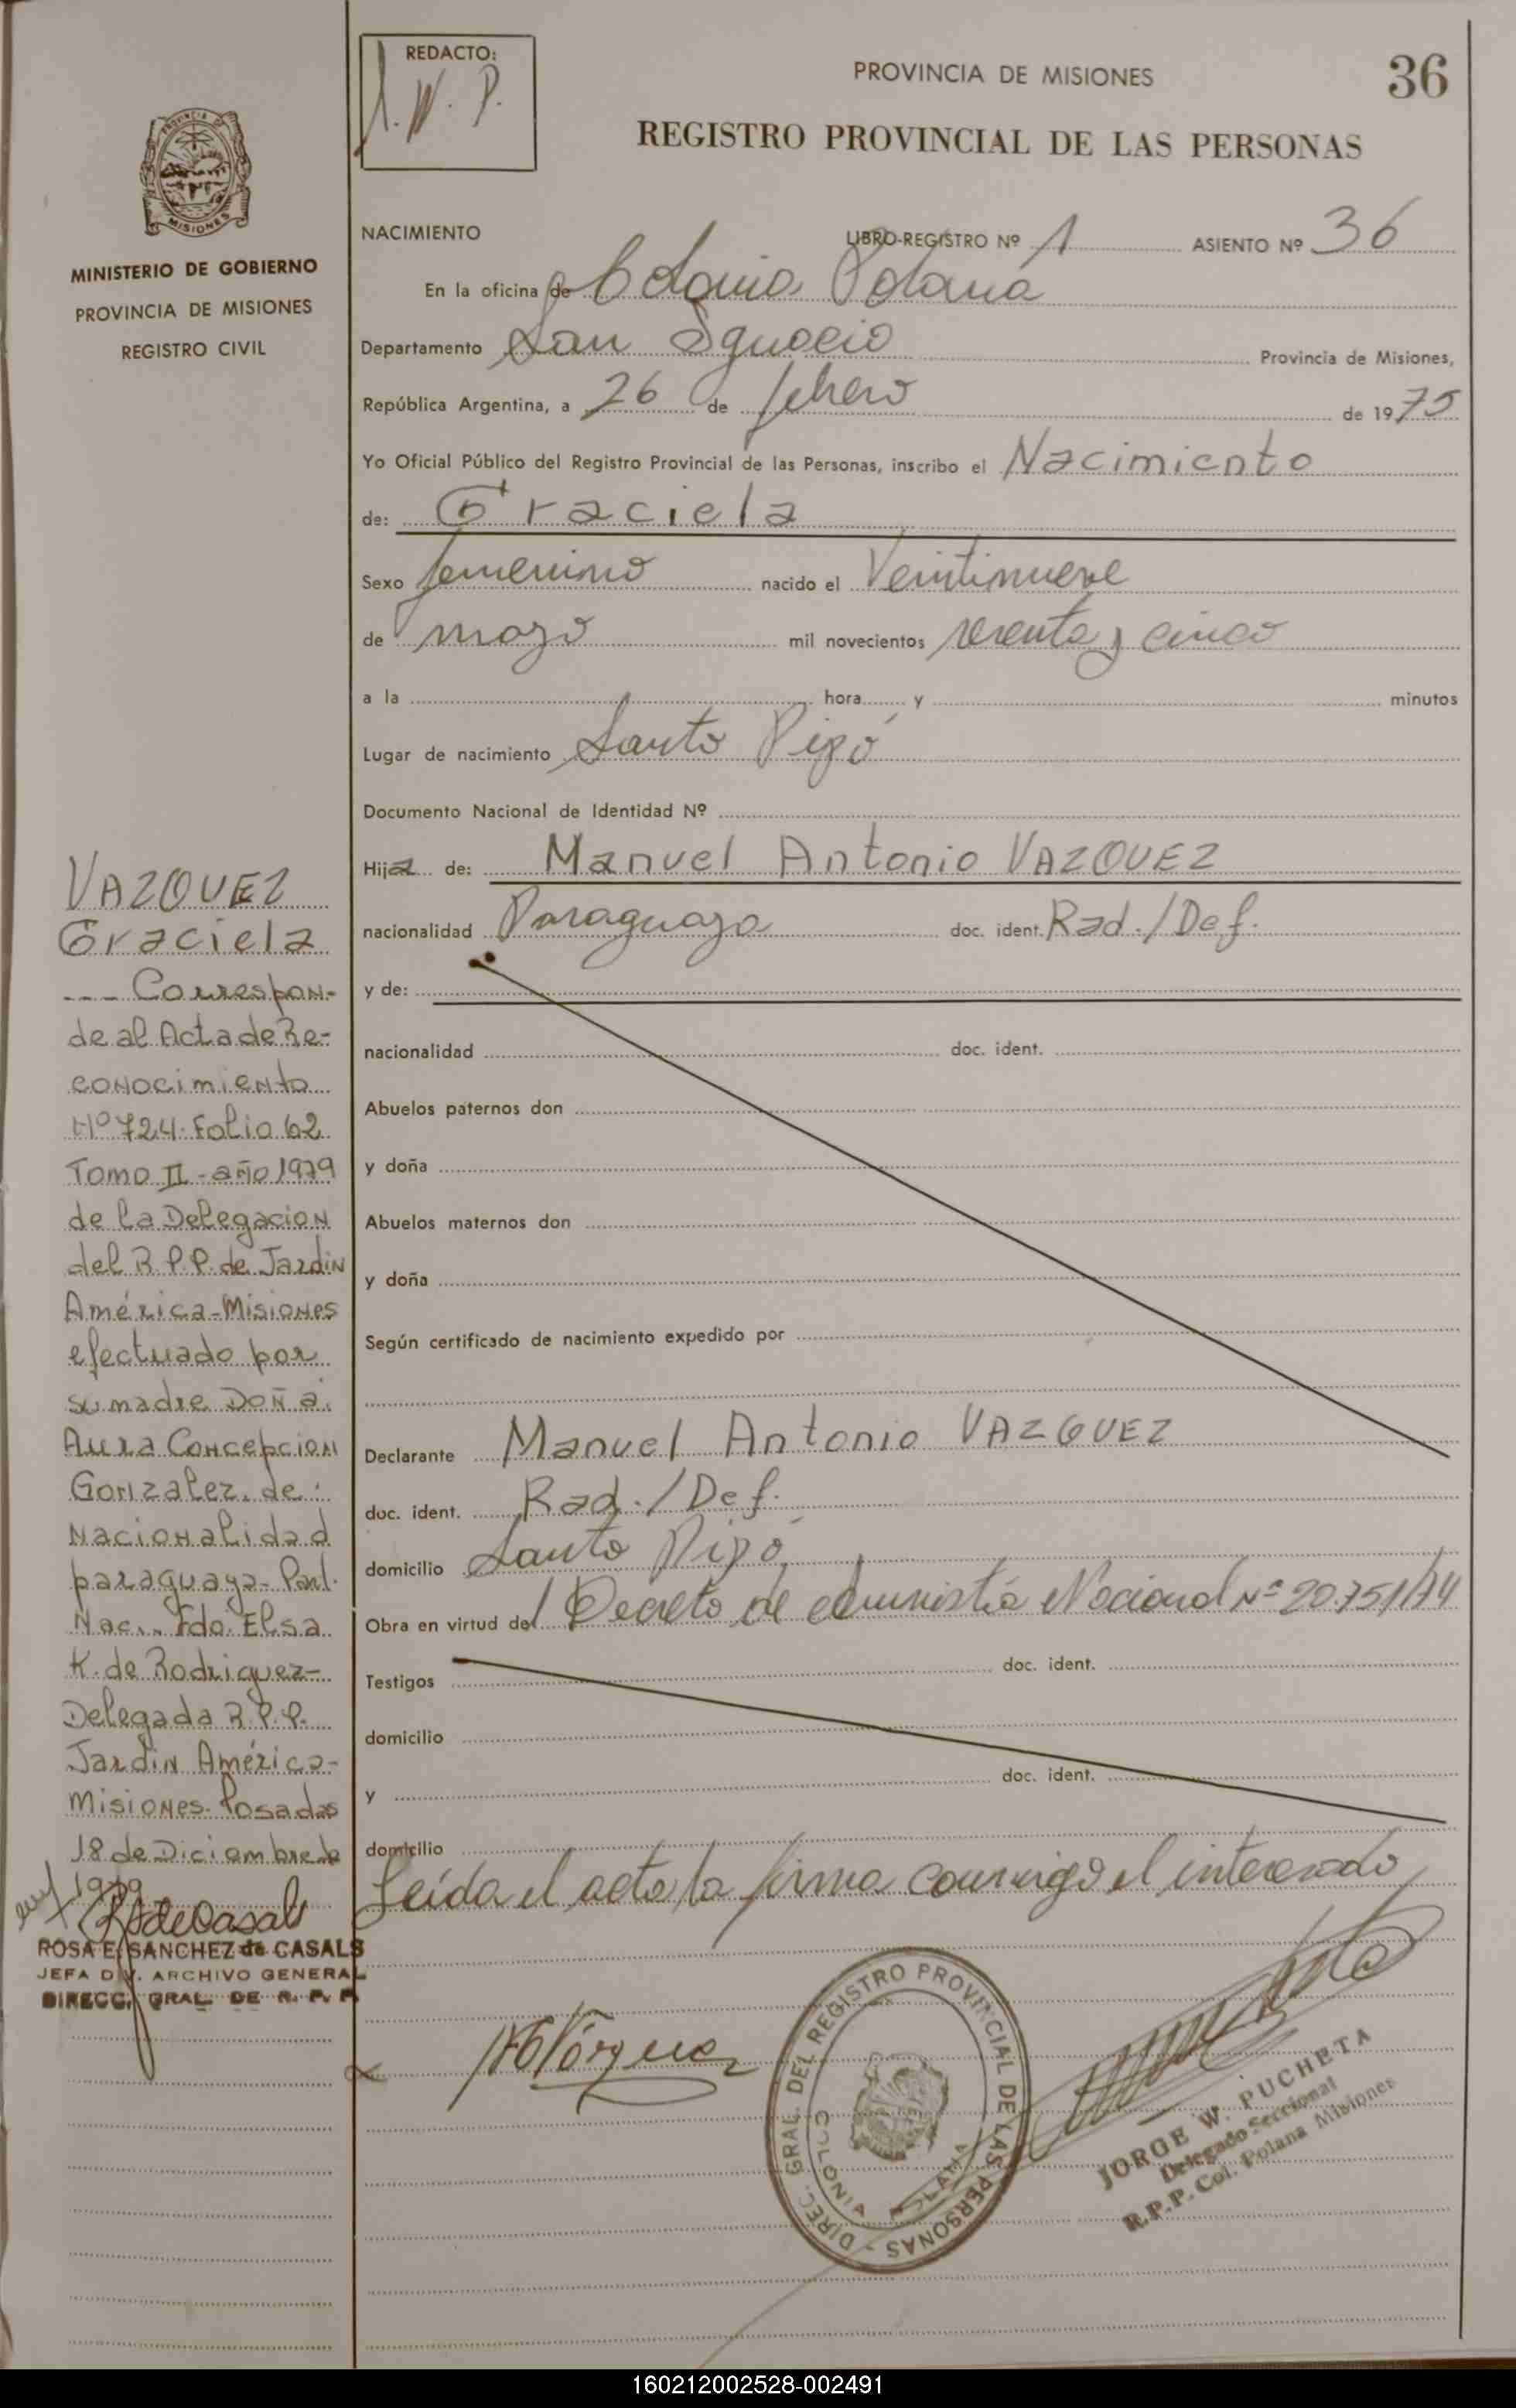 REDACTO:
J. W. P.
PROVINCIA DE MISIONES
36
REGISTRO PROVINCIAL DE LAS PERSONAS
MISIONES
MINISTERIO DE GOBIERNO
PROVINCIA DE MISIONES
REGISTRO CIVIL
NACIMIENTO LIBRO-REGISTRO Nº 1 ASIENTO Nº 36
En la oficina de Colonia Polana
Departamento San Ignacio Provincia de Misiones,
República Argentina, a 26 de febrero de 1975
Yo Oficial Público del Registro Provincial de las Personas, inscribo el Nacimiento
de: Graciela
Sexo femenino nacido el Veintinueve
de marzo mil novecientos sesenta y cinco
a la hora y minutos
Lugar de nacimiento Santo Pipó
Documento Nacional de Identidad Nº
Hija de: Manuel Antonio VAZQUEZ
nacionalidad Paraguaya doc. ident. Rad./Def.
y de:
nacionalidad doc. ident.
Abuelos paternos don
y doña
Abuelos maternos don
y doña
Según certificado de nacimiento expedido por
Declarante Manuel Antonio VAZQUEZ
doc. ident. Rad./Def.
domicilio Santo Pipó
Obra en virtud del Decreto de Nacional Nº 20.751/74
Testigos doc. ident.
domicilio
y doc. ident.
domicilio
Leída el acta la firma conmigo el interesado
VAZQUEZ
Graciela
--- Correspon-
de al Acta de Re-
conocimiento
Nº 724. Folio 62
Tomo II - año 1979
de la Delegacion
del R.P.P. de Jardin
América-Misiones
efectuado por
su madre Doña
Aura Concepcion
Gonzalez. de
Nacionalidad
paraguaya-
Nac... Fdo. Elsa
K. de Rodriguez-
Delegada R.P.P.
Jardin América-
Misiones. Posadas
18 de Diciembre de
1979
ROSA E. SANCHEZ de CASALS
JEFA DIV. ARCHIVO GENERAL
DIRECC. GRAL. DE R. P. P.
DIREC. GRAL. DEL REGISTRO PROVINCIAL DE LAS PERSONAS -
COLONIA POLANA
JORGE W. PUCHETA
Delegado Seccional
R.P.P. Col. Polana Misiones
160212002528-002491